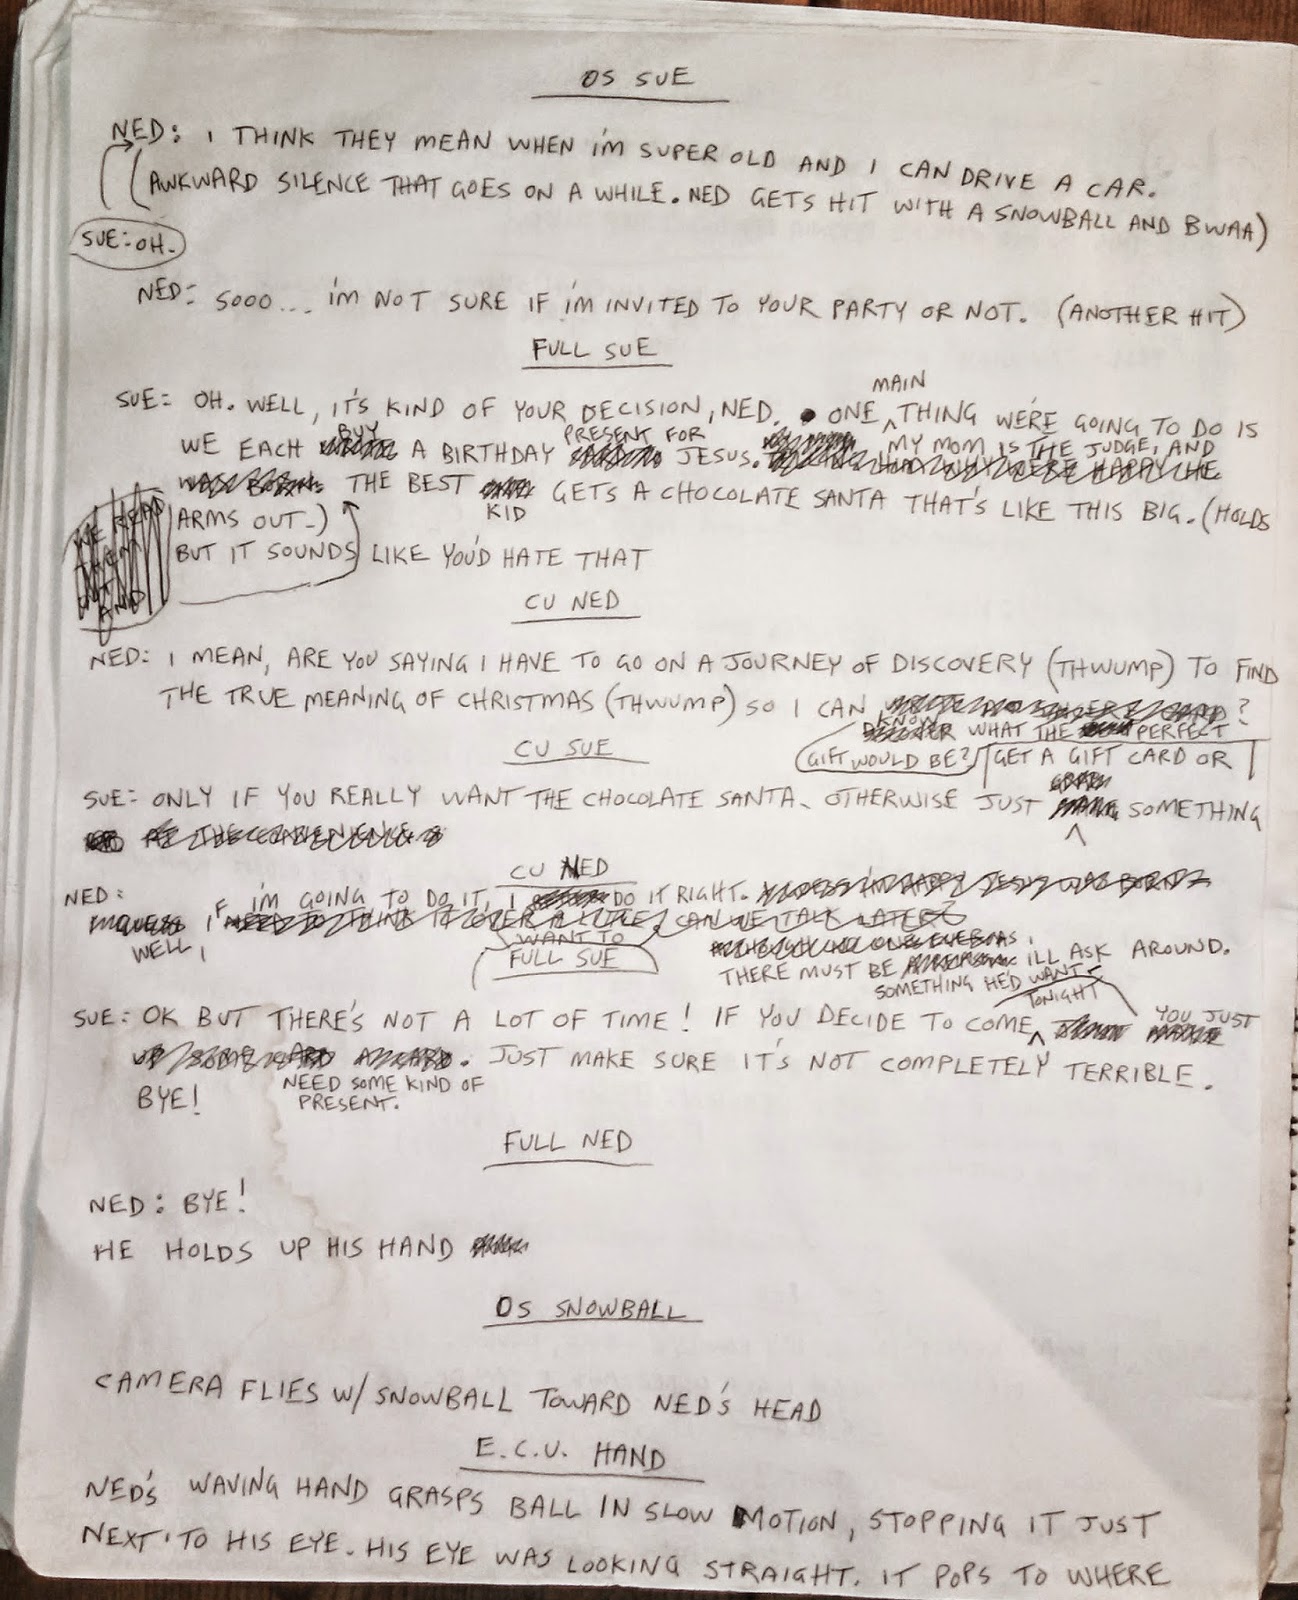 OS SUE
NED: I THINK THEY MEAN WHEN I'M SUPER OLD AND I CAN DRIVE A CAR.
(AWKWARD SILENCE THAT GOES ON A WHILE. NED GETS HIT WITH A SNOWBALL AND BWAA)
SUE: OH.
NED: SOOO... I'M NOT SURE IF I'M INVITED TO YOUR PARTY OR NOT. (ANOTHER HIT)
FULL SUE
MAIN
SUE: OH. WELL, IT'S KIND OF YOUR DECISION, NED. ONE THING WE'RE GOING TO DO IS
BUY PRESENT FOR MY MOM IS THE JUDGE, AND
WE EACH A BIRTHDAY JESUS. WHY WE'RE HAPPY HE
WAS BORN. THE BEST GETS A CHOCOLATE SANTA THAT'S LIKE THIS BIG. (HOLDS
KID
WE READ
ARMS OUT.)
BUT IT SOUNDS LIKE YOU'D HATE THAT
AND
CU NED
NED: I MEAN, ARE YOU SAYING I HAVE TO GO ON A JOURNEY OF DISCOVERY (THWUMP) TO FIND
THE TRUE MEANING OF CHRISTMAS (THWUMP) SO I CAN ?
KNOW
WHAT THE PERFECT
CU SUE
GIFT WOULD BE? GET A GIFT CARD OR
SUE: ONLY IF YOU REALLY WANT THE CHOCOLATE SANTA. OTHERWISE JUST SOMETHING
AT THE CONVENIENCE
CU NED
NED: I'M GOING TO DO IT, I DO IT RIGHT. I'M HAPPY JESUS WAS BORN
IF NEED TO THINK IT OVER A LITTLE. CAN WE TALK LATER?
WELL, WANT TO
FULL SUE
THERE MUST BE I'LL ASK AROUND.
SOMETHING HE'D WANT.
TONIGHT YOU JUST
SUE: OK BUT THERE'S NOT A LOT OF TIME! IF YOU DECIDE TO COME
JUST MAKE SURE IT'S NOT COMPLETELY TERRIBLE.
NEED SOME KIND OF
BYE! PRESENT.
FULL NED
NED: BYE!
HE HOLDS UP HIS HAND
OS SNOWBALL
CAMERA FLIES W/ SNOWBALL TOWARD NED'S HEAD
E.C.U. HAND
NED'S WAVING HAND GRASPS BALL IN SLOW MOTION, STOPPING IT JUST
NEXT TO HIS EYE. HIS EYE WAS LOOKING STRAIGHT. IT POPS TO WHERE